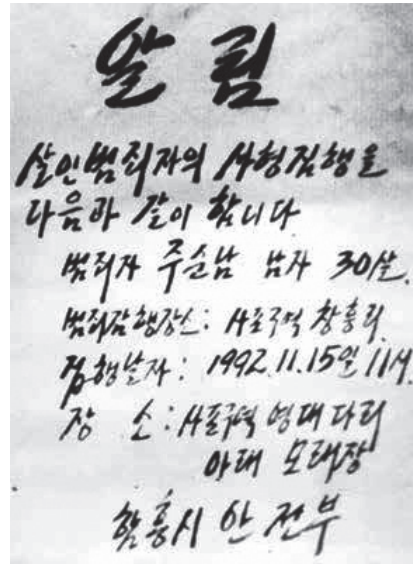 알림
살인범죄자의 사형집행을
다음과 같이 합니다
범죄자 주순남 남자 30살.
범죄감행장소: 사포구역 창흥리
집행날자: 1992.11.15일 11시
장 소: 사포구역 영대다리
아래 모래장
함흥시 안전부